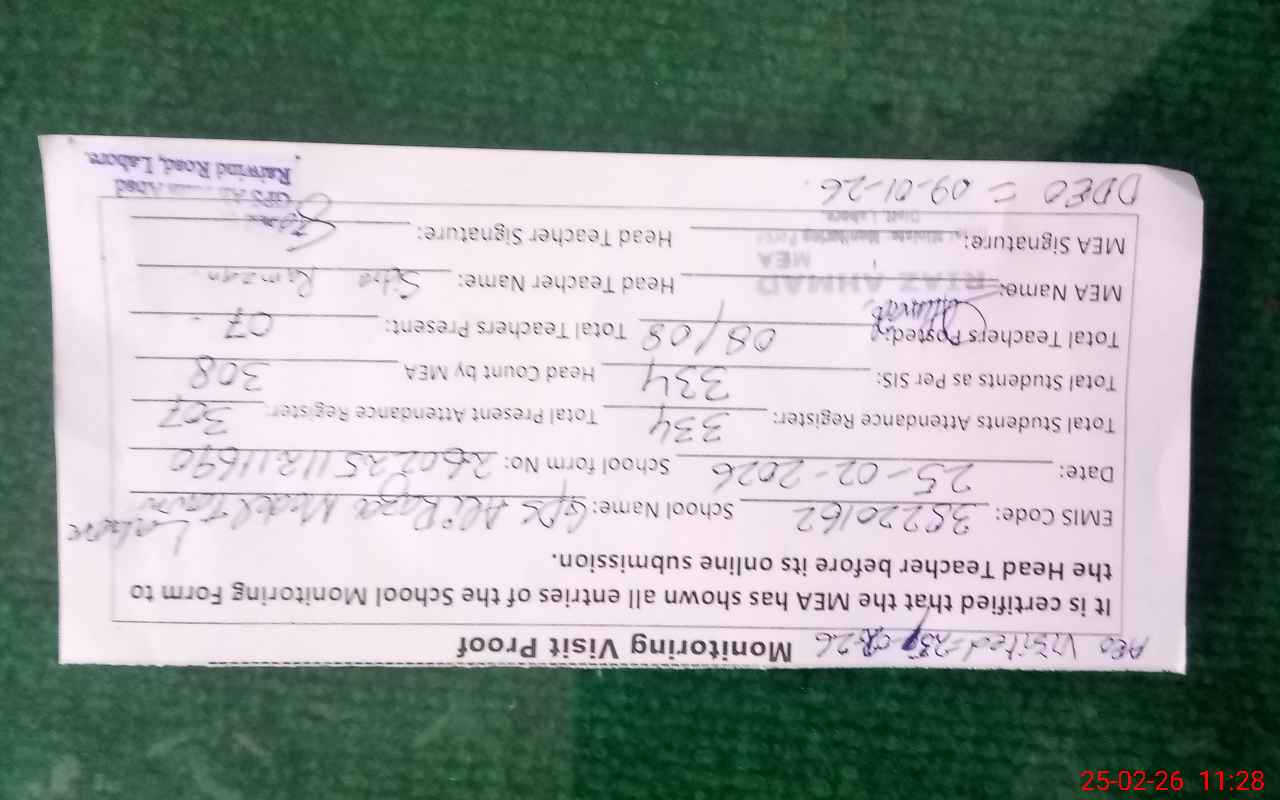 AEO Visited = 23-02-26 Monitoring Visit Proof
It is certified that the MEA has shown all entries of the School Monitoring Form to
the Head Teacher before its online submission.
EMIS Code: 35220162 School Name: GPS Ali Raza Model Town Lahore
Date: 25-02-2026 School form No: 260225112111690
Total Students Attendance Register: 334 Total Present Attendance Register: 307
Total Students as Per SIS: 334 Head Count by MEA 308
Total Teachers Posted: 08/08 Total Teachers Present: 07
MEA Name: RIAZ AHMAD Head Teacher Name: Sidra Ramzan
MEA
MEA Signature: Head Teacher Signature:
DDEO = 09-01-26
Raiwind Road, Lahore.
25-02-26 11:28